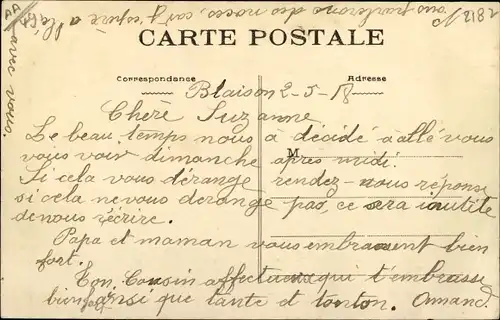 Nous parlerons des noces, car j'espère a
avec vous.
CARTE POSTALE
Correspondance
Adresse
Blaison 2-5-18
Chère Suzanne
Le beau temps nous a décidé a allé vous
vous voir dimanche après midi.
M
Si cela vous dérange rendez-nous réponse
si cela ne vous derange pas, ce sera inutile
de nous écrire.
Papa et maman vous embrassent bien
fort.
Ton Cousin affectueux qui t'embrasse
bien fort ainsi que tante et tonton. Armand.
2182
AA